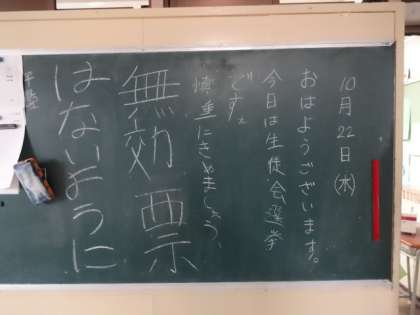 10月22日(水)
おはようございます。
今日は生徒会選挙
です。
慎重にきめましょう、
無効票
はないように